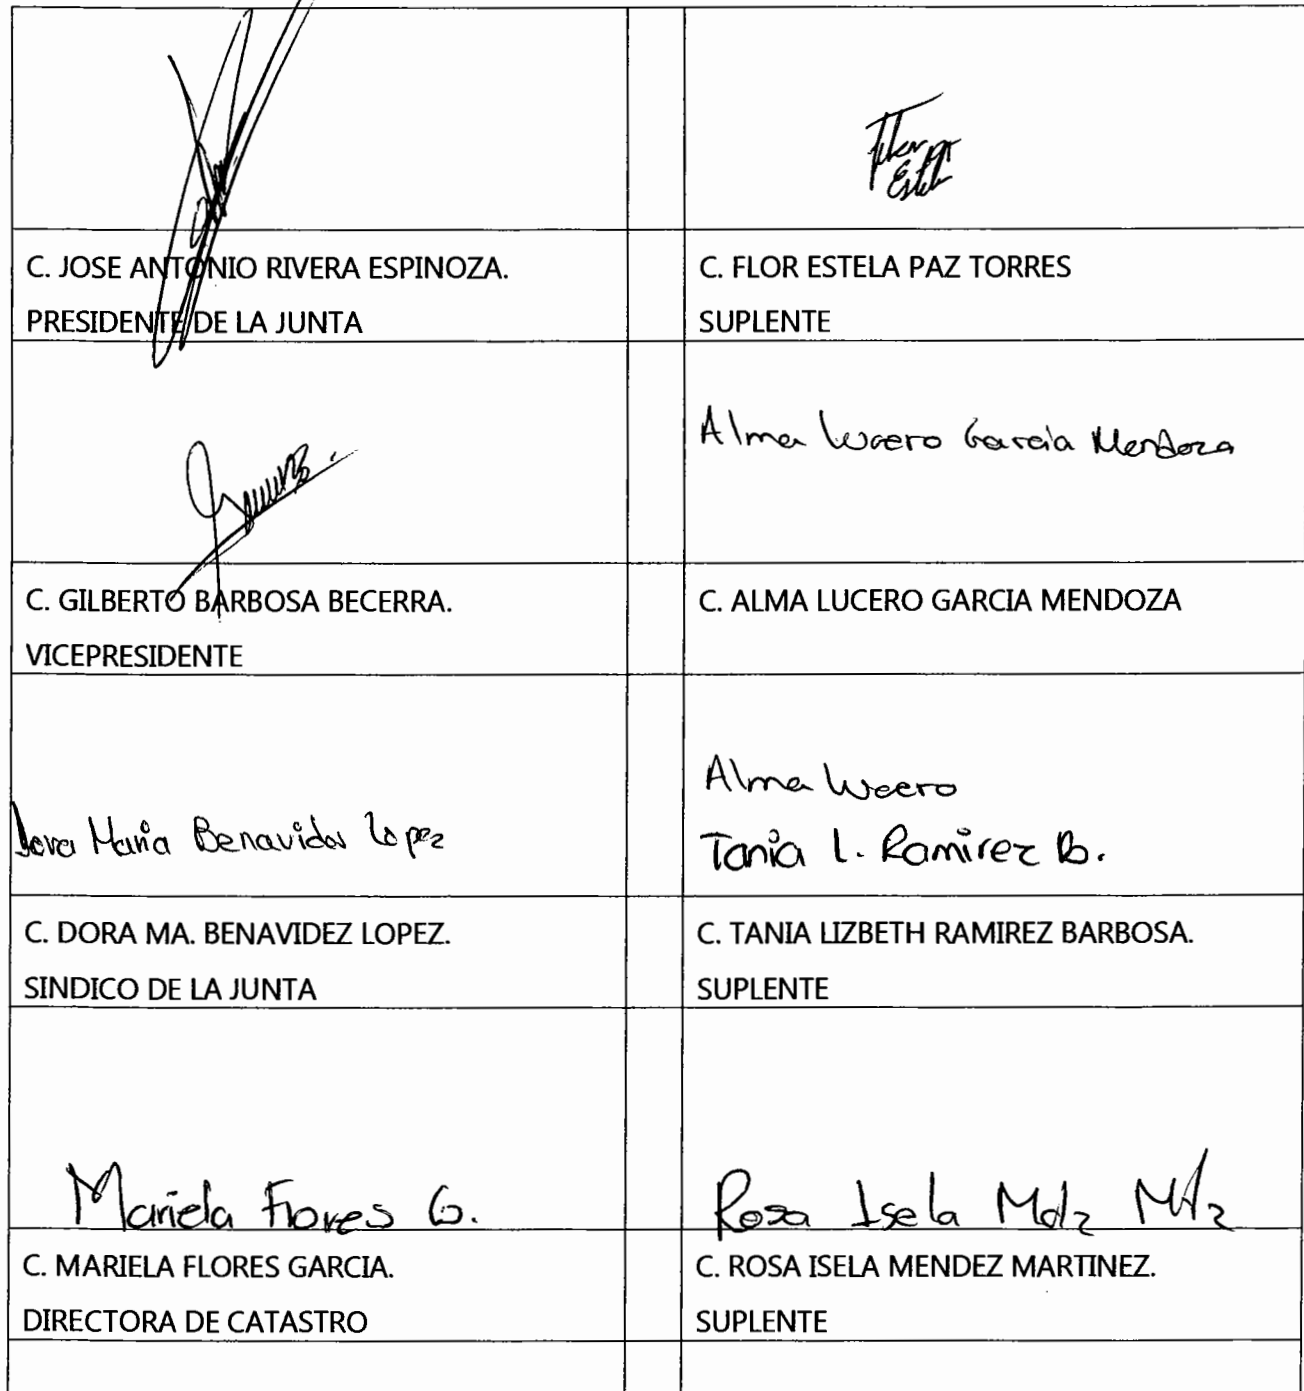 Flor
Estela
C. JOSE ANTONIO RIVERA ESPINOZA.
PRESIDENTE DE LA JUNTA
C. FLOR ESTELA PAZ TORRES
SUPLENTE
Alma Lucero García Mendoza
C. GILBERTO BARBOSA BECERRA.
VICEPRESIDENTE
C. ALMA LUCERO GARCIA MENDOZA
Dora María Benavides Lopez
Alma Lucero
Tania L. Ramirez B.
C. DORA MA. BENAVIDEZ LOPEZ.
SINDICO DE LA JUNTA
C. TANIA LIZBETH RAMIREZ BARBOSA.
SUPLENTE
Mariela Flores G.
Rosa Isela Mdz Mtz
C. MARIELA FLORES GARCIA.
DIRECTORA DE CATASTRO
C. ROSA ISELA MENDEZ MARTINEZ.
SUPLENTE